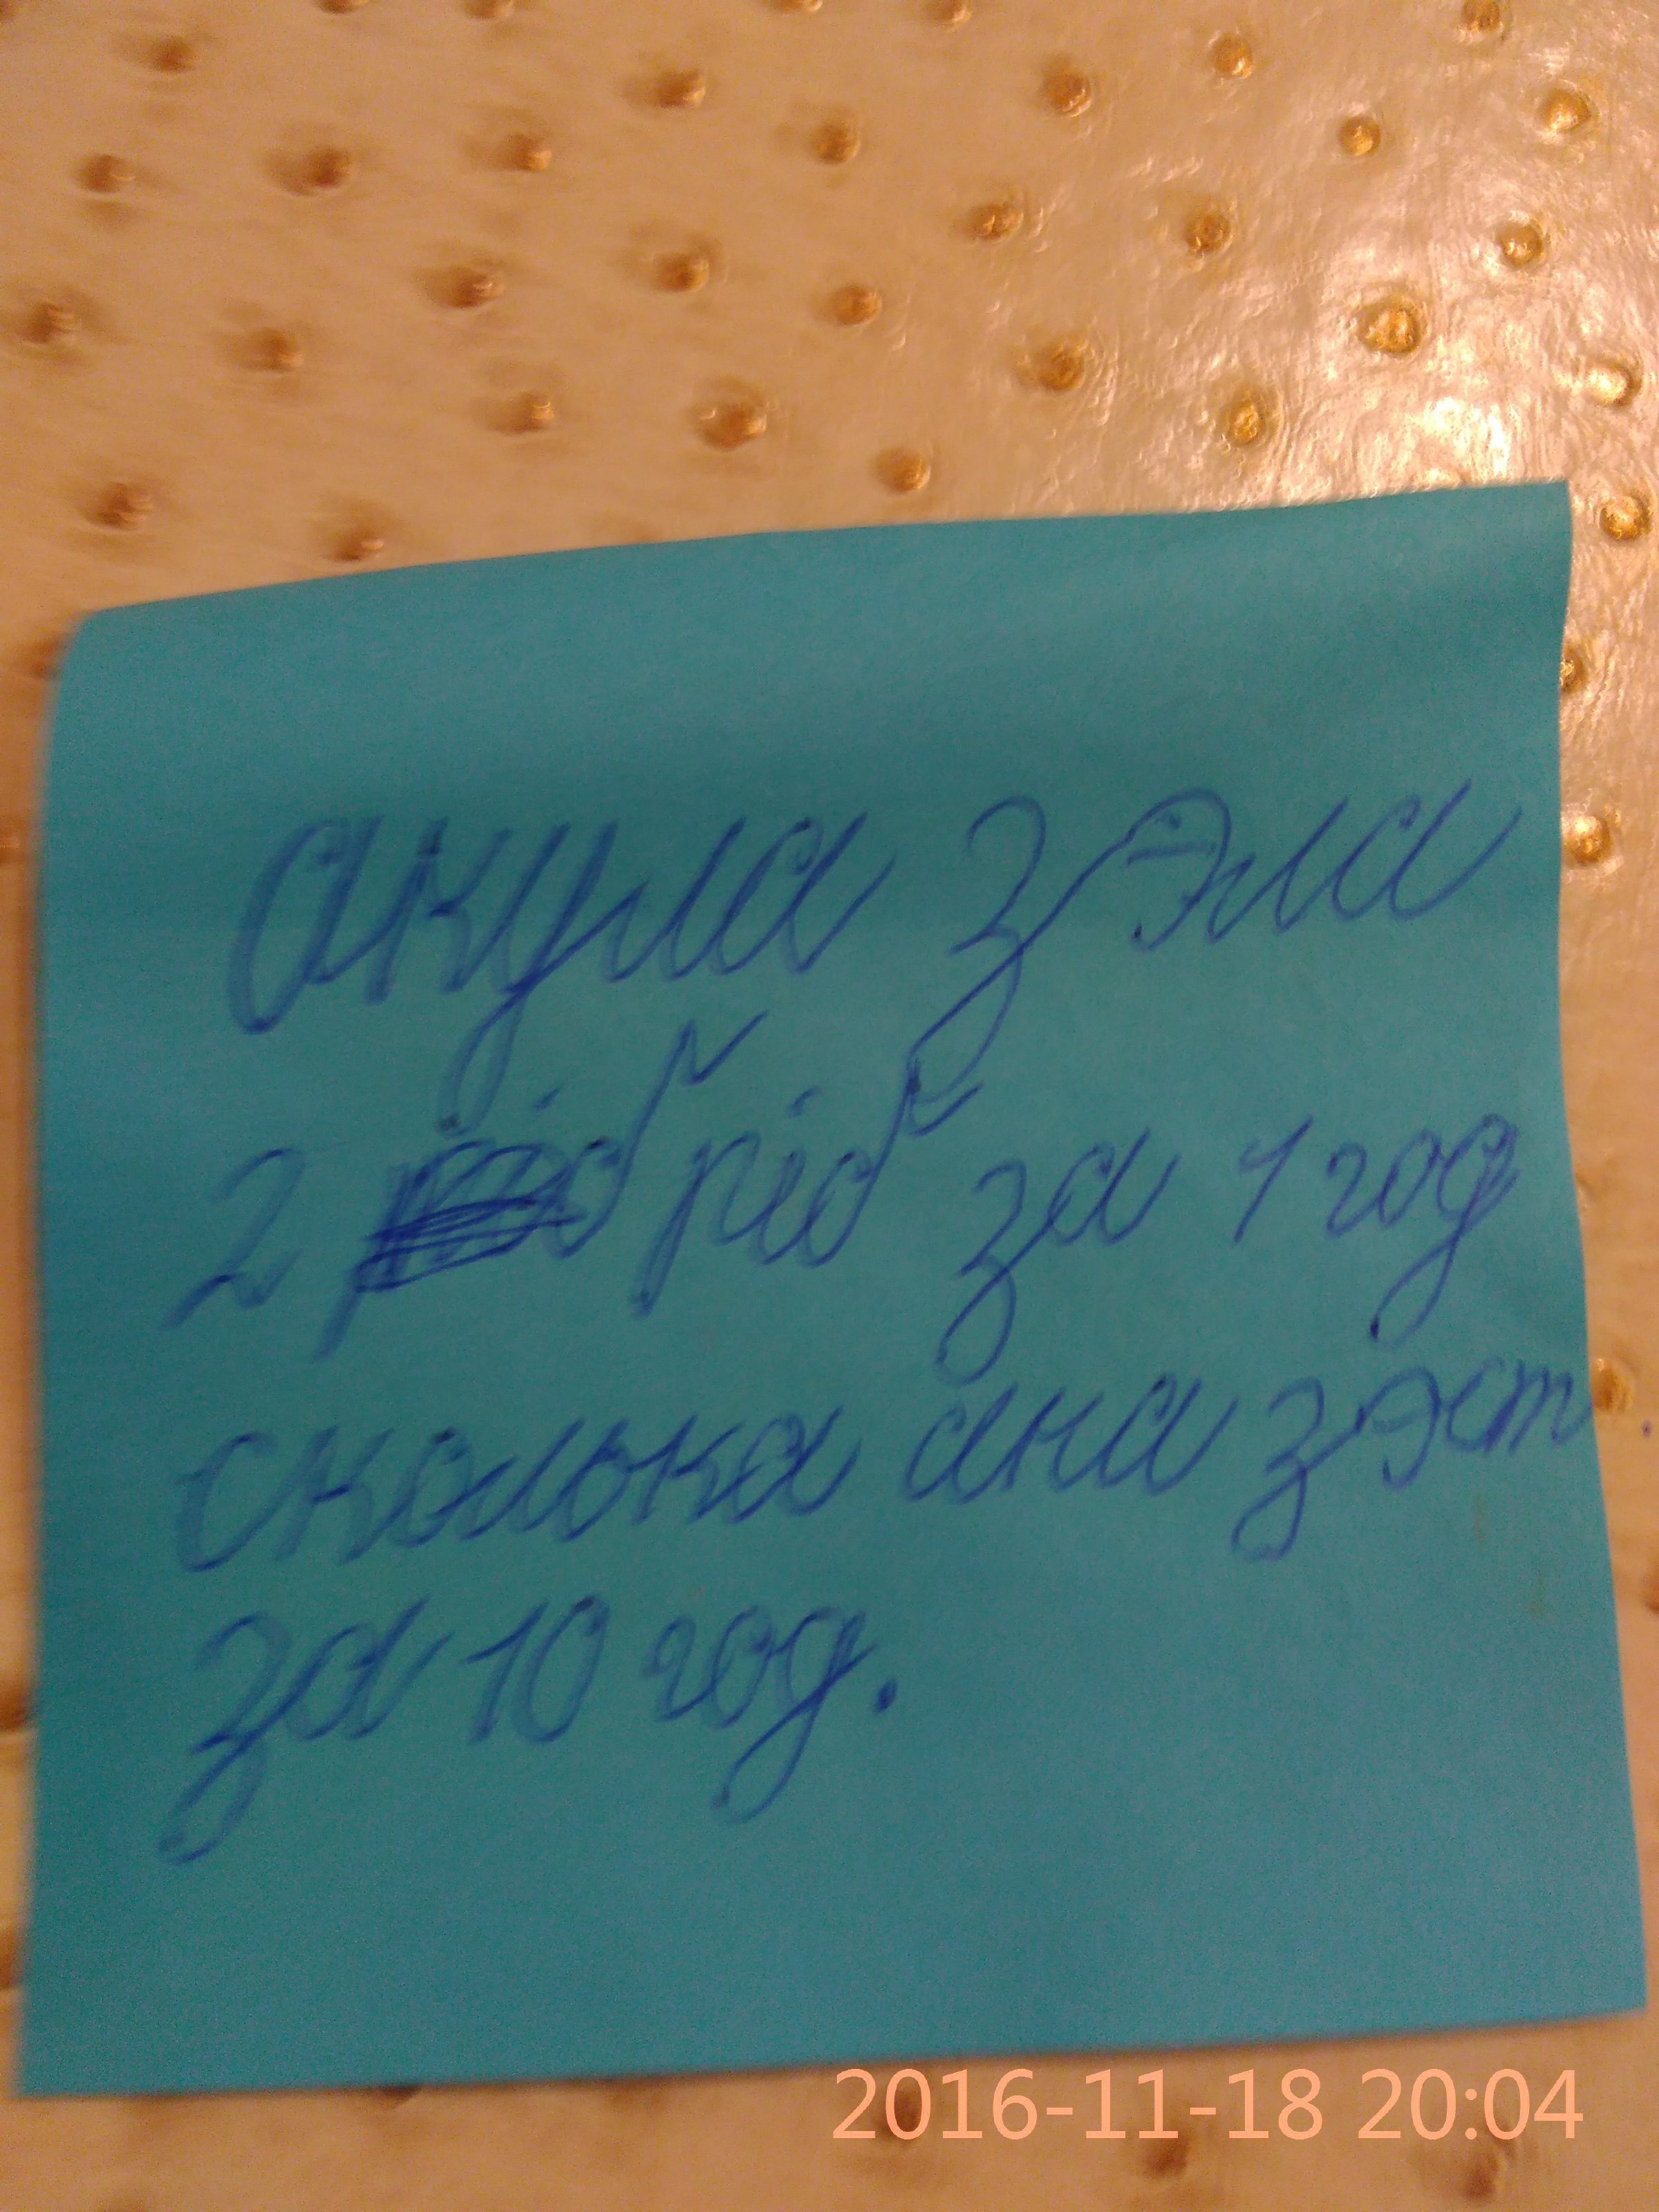 акула зэла
2 ріб за 1 год
сколька ана зэст
за 10 год.
2016-11-18 20:04